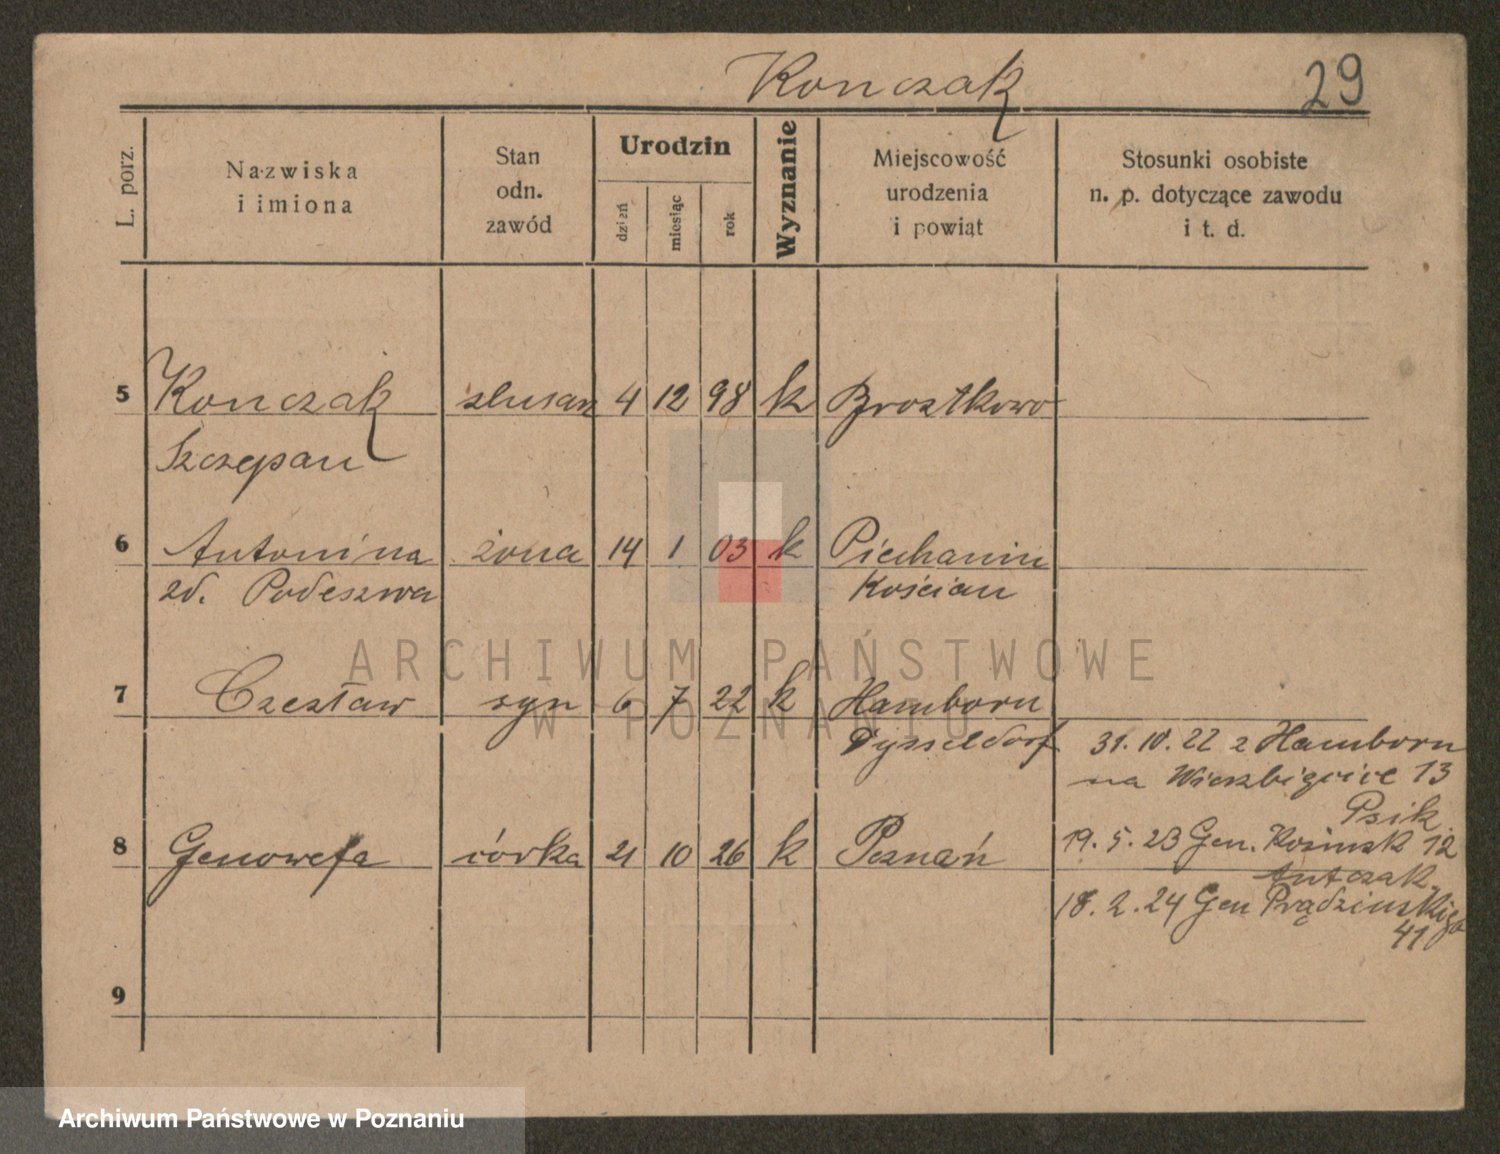 Konczak 29
L. porz.
Nazwiska
i imiona
Stan
odn.
zawód
Urodzin
dzień
miesiąc
rok
Wyznanie
Miejscowość
urodzenia
i powiąt
Stosunki osobiste
n. p. dotyczące zawodu
i t. d.
5 Konczak ślusarz 4 12 98 k Brostkowo
Szczepan
6 Antonina żona 14 1 03 k Piechanin
zd. Podeszwa Kościan
ARCHIWUM PAŃSTWOWE
W POZNANIU
7 Czesław syn 6 7 22 k Hamborn
Dysseldorf 31. 10. 22 z Hamborn
na Wierzbięcice 13
Psik
8 Genowefa córka 21 10 26 k Poznań 19. 5. 23 Gen. Kosinsk 12
Antczak
18. 2. 24 Gen Prądzinskiego
41
9
Archiwum Państwowe w Poznaniu